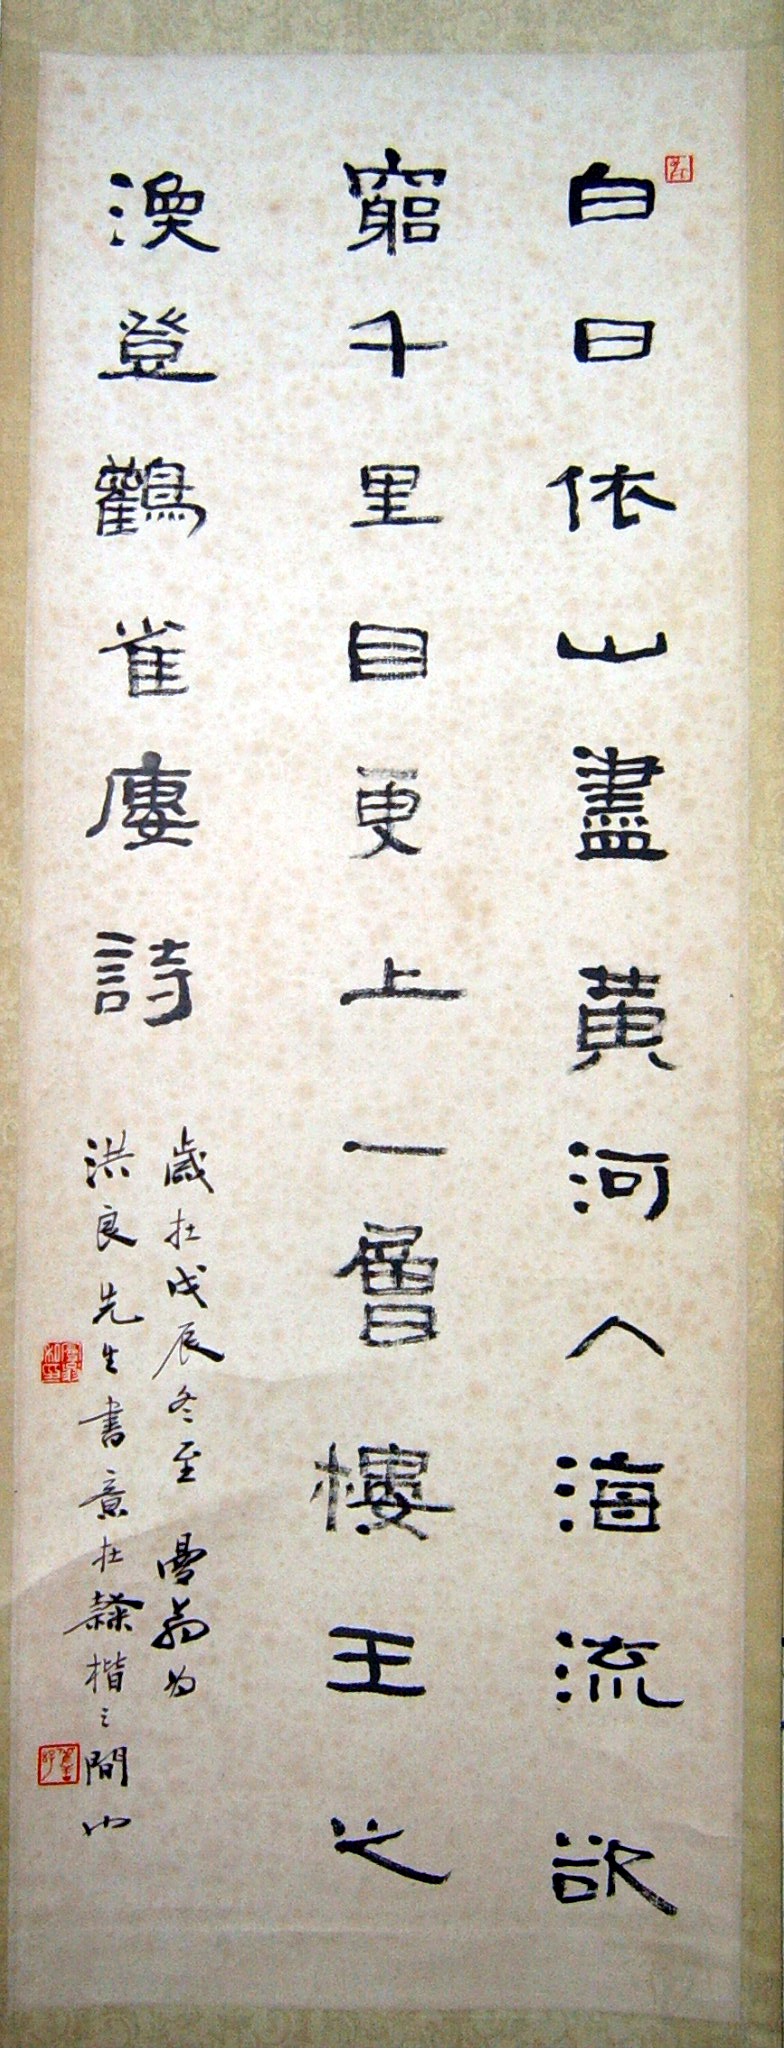 白日依山盡黄河入海流欲
窮千里目更上一層樓王之
渙登鸛雀廔詩
歲在戊辰冬至 翁为
洪良先生書意在隸楷之間也